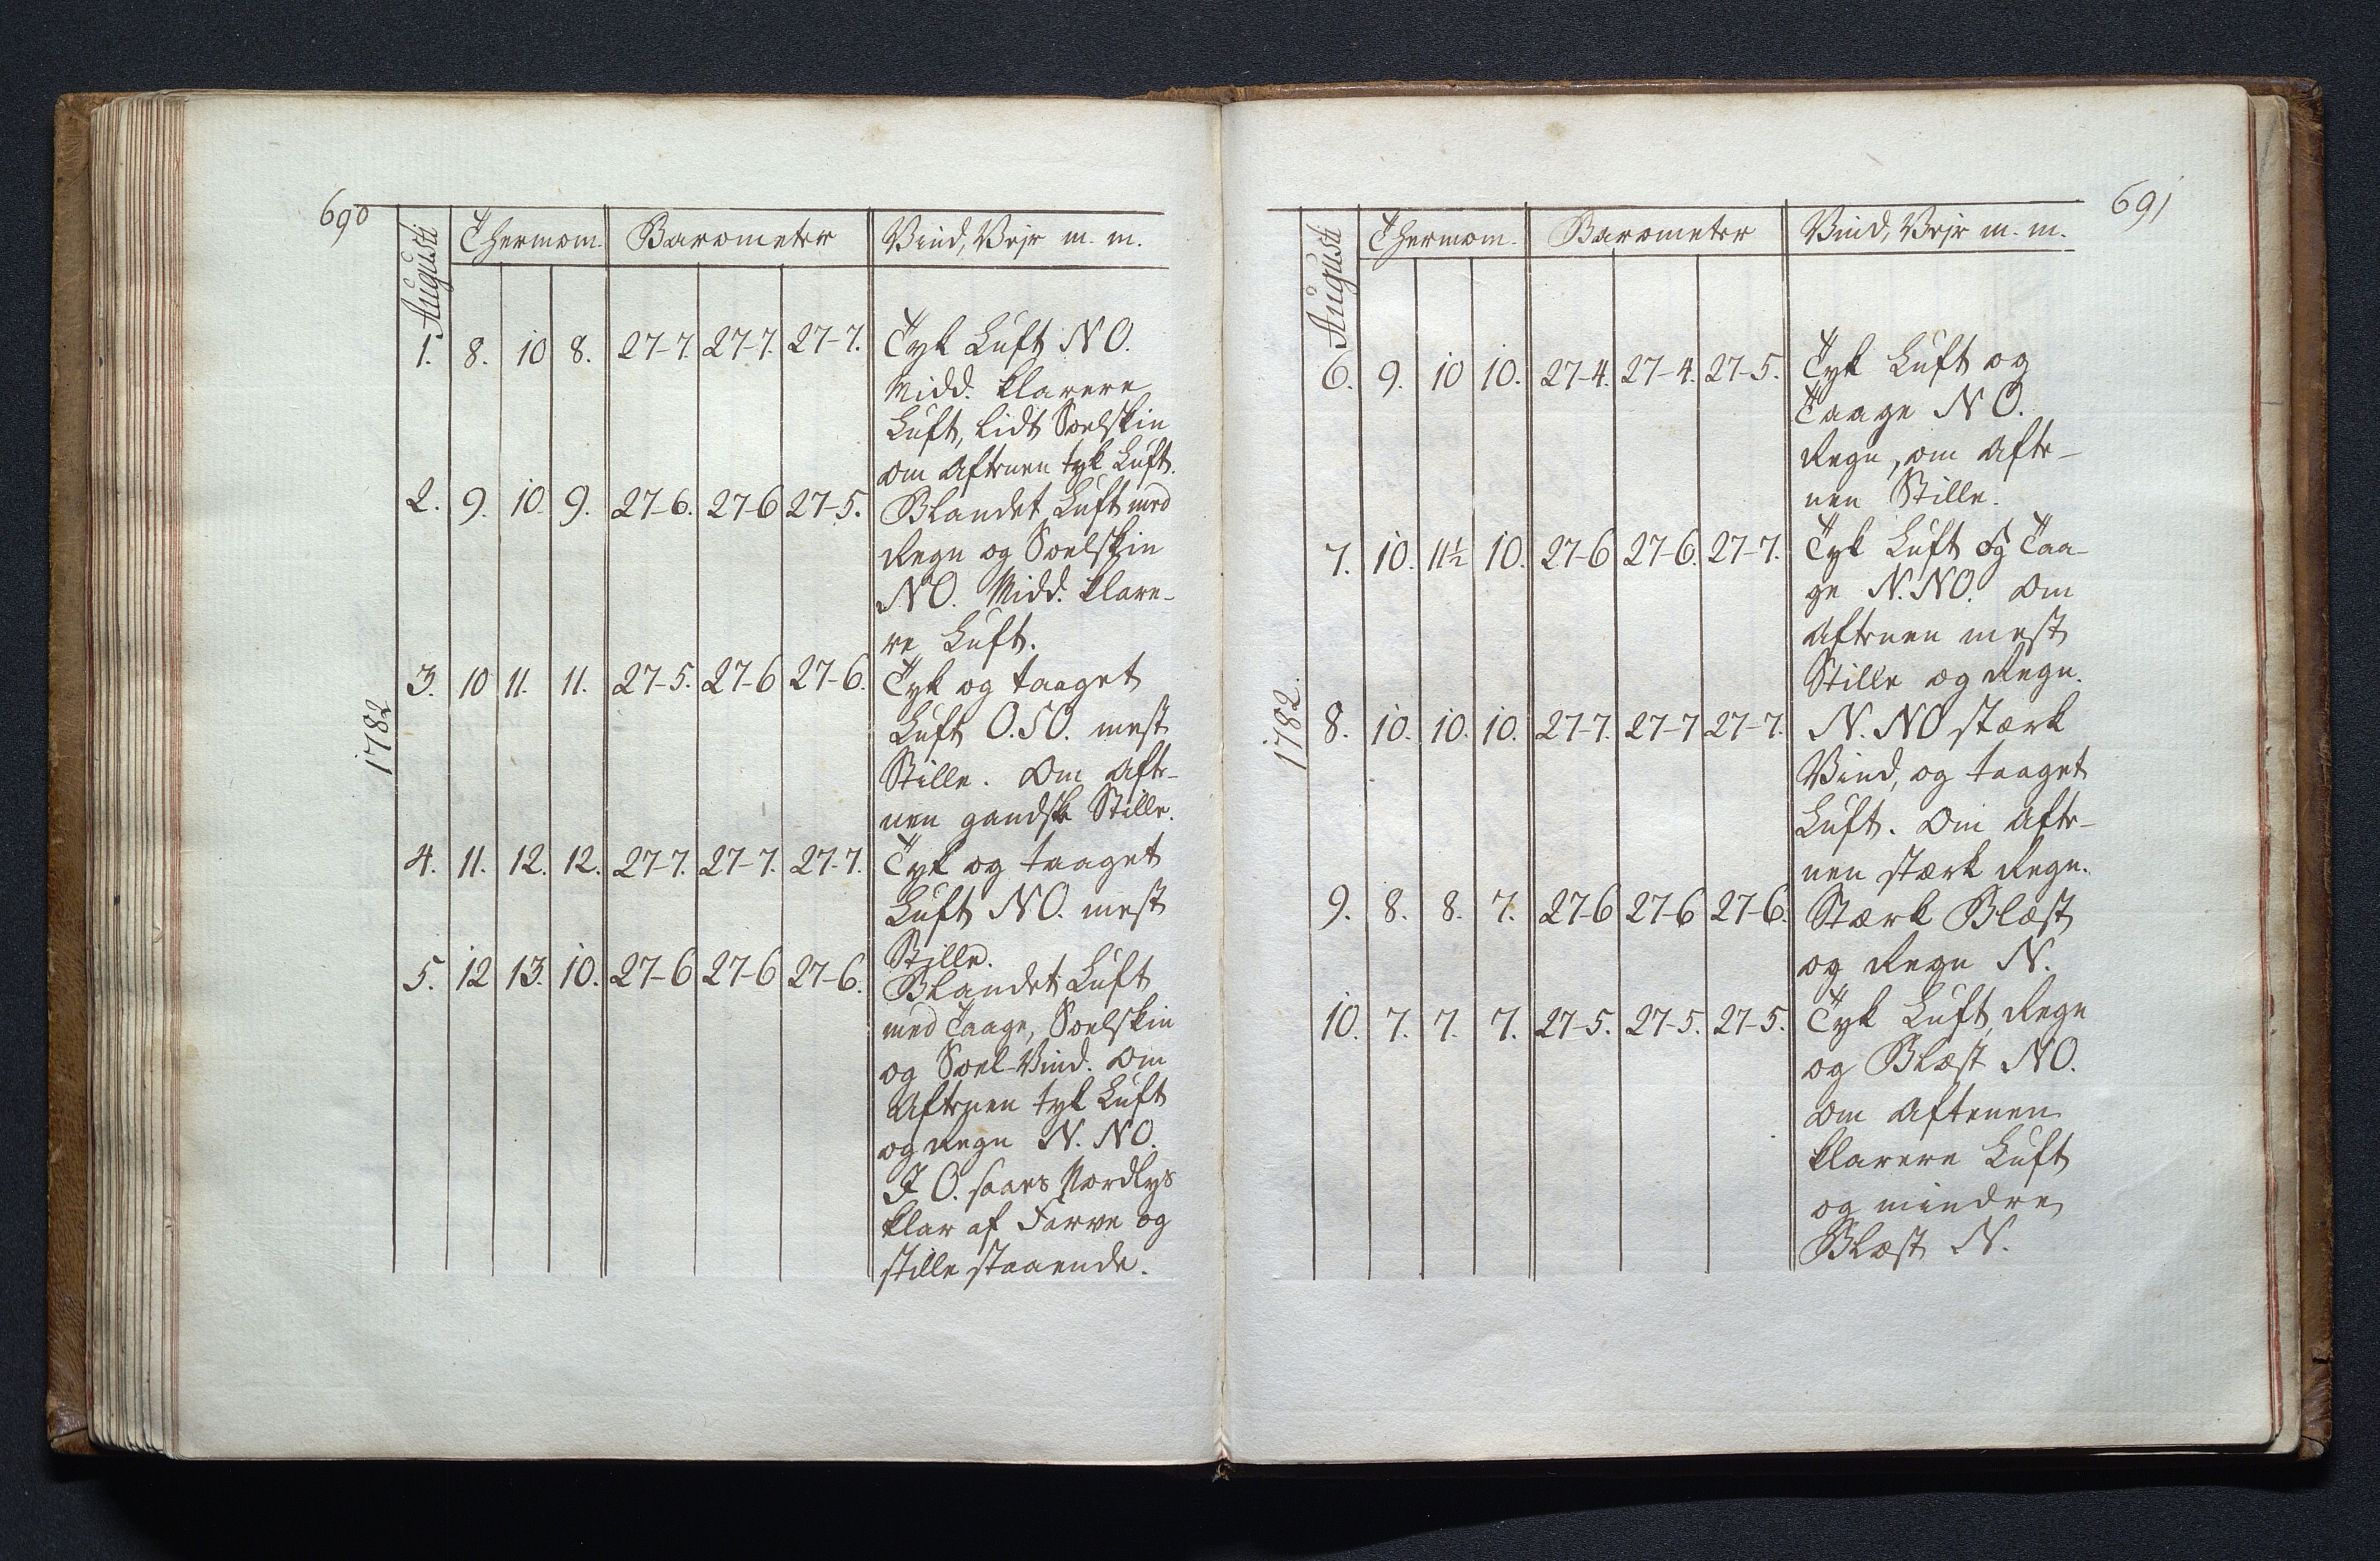 690
Augusti Thermom. Barometer Vind, Vejr m. m.
1. 8. 10 8. 27-7. 27-7. 27-7. Tyk Luft NO.
Midd. klarere
Luft, lidt Soelskin
om Aftenen tyk Luft.
2. 9. 10. 9. 27-6. 27-6 27-5. Blandet Luft med
Regn og Soelskin
NO. Midd. klare-
re Luft.
3. 10 11. 11. 27-5. 27-6 27-6. Tyk og taaget
Luft O.SO. mest
Stille. Om Afte-
nen gandske Stille.
1782
4. 11. 12. 12. 27-7. 27-7. 27-7. Tyk og taaget
Luft NO. mest
Stille.
5. 12 13. 10. 27-6 27-6 27-6. Blandet Luft
med Taage, Soelskin
og Soel-Vind. Om
Aftenen tyk Luft
og Regn N. NO.
I O. saaes Nordlys
klar af Farve og
stille staaende.
691
Augusti Thermom. Barometer Vind, Vejr m. m.
6. 9. 10 10. 27-4. 27-4. 27-5. Tyk Luft og
Taage NO.
Regn, om Afte-
nen Stille.
7. 10. 11½ 10. 27-6 27-6. 27-7. Tyk Luft og Taa-
ge N.NO. Om
Aftenen mest
Stille og Regn.
1782.
8. 10. 10. 10. 27-7. 27-7 27-7. N. NO stærk
Vind, og taaget
Luft. Om Afte-
nen stærk Regn.
9. 8. 8. 7. 27-6 27-6 27-6. Stærk Blæst
og Regn N.
10. 7. 7. 7. 27-5. 27-5. 27-5. Tyk Luft, Regn
og Blæst NO.
Om Aftenen
klarere Luft
og mindre
Blæst N.